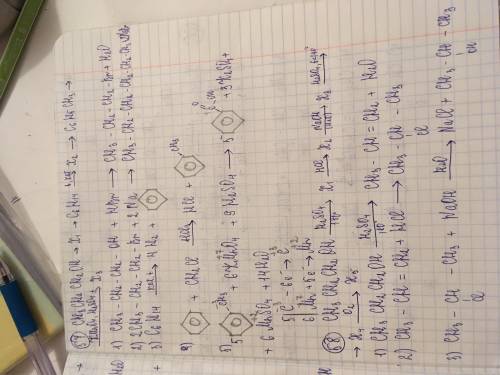 57 CH3CH2CH2OH → X1 → C6H14 → X2 → C6H5CH3 →
KMnO4, H2SO4 → X3
1) CH3 - CH2 - CH2 - OH + HBr → CH3 - CH2 - CH2 - Br + H2O
2) 2CH3 - CH2 - CH2 - Br + 2Na → CH3 - CH2 - CH2 - CH2 - CH2 - CH3
3) C6H14 → 4H2 +
4) + CH3Cl → HCl + CH3
5) 5 CH3 + 6KMnO4 + 9H2SO4 → 5 + 3K2SO4 +
+ 6MnSO4 + 14H2O
58 CH3CH2CH2OH H2SO4 → X1 HCl → X2 NaOH → X3
→ X4 → X5
1) CH3CH2CH2OH H2SO4 → CH3 - CH = CH2 + H2O
2) CH3 - CH = CH2 + HCl → CH3 - CH - CH3
Cl
3) CH3 - CH - CH3 + NaOH H2O → NaCl + CH3 - CH - CH3
Cl OH